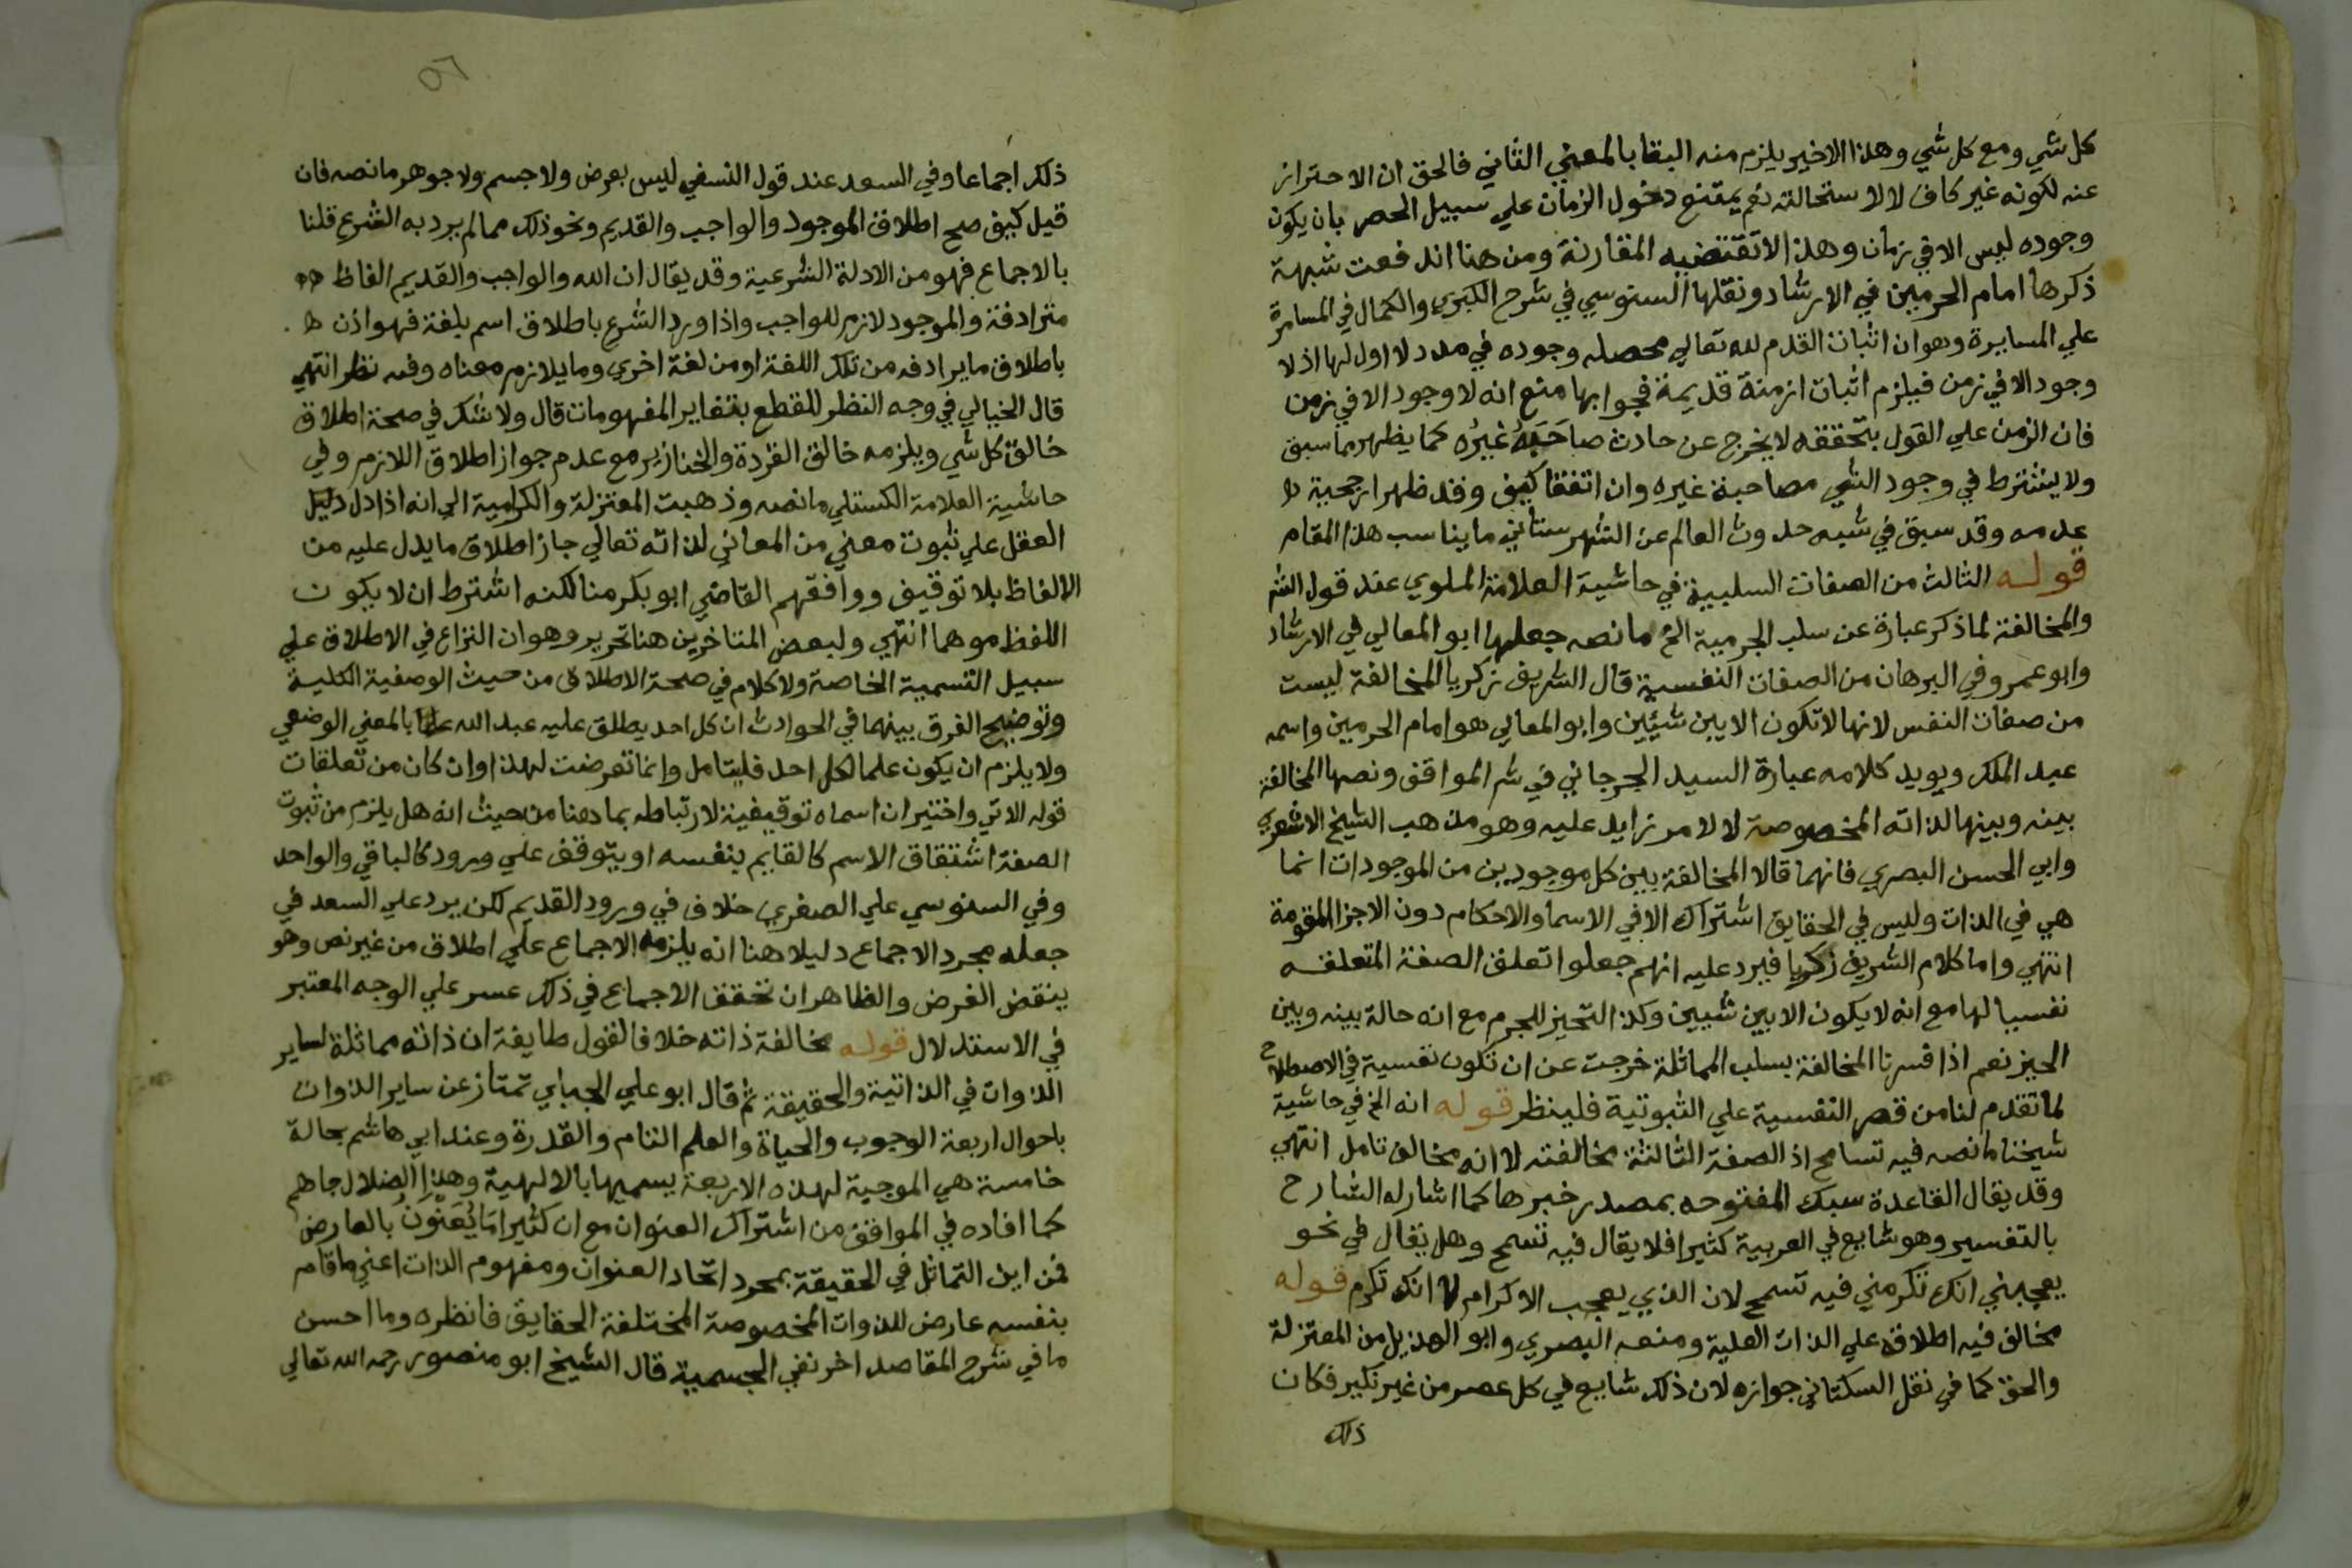 كل شي ومع كل شي وهذا الاخير يلزم منه البقا بالمعني الثاني فالحق ان الاحتراز
عنه لكونه غير كاف لا لاستحالته نعم يمتنع دخول الزمان علي سبيل الحصر بان يكون
وجوده ليس الا في زمان وهذا لا تقتضيه المقارنة ومن هنا اندفعت شبهة
ذكرها امام الحرمين في الارشاد ونقلها السنوسي في شرح الكبري والكمال في المسامرة
علي المسايرة وهو ان اثبات القدم لله تعالي محصله وجوده في مدد لا اول لها اذ لا
وجود الا في زمن فيلزم اثبات ازمنة قديمة فجوابها منع انه لا وجود الا في زمن
فان الزمن علي القول بتحققه لا يخرج عن حادث صاحبه غيره كما يظهر مما سبق
ولا يشترط في وجود الشي مصاحبة غيره وان اتفقا كيف وقد ظهر ارجحية
عدمه وقد سبق في شبه حدوث العالم عن الشهرستاني ما يناسب هذا المقام
قوله الثالث من الصفات السلبية في حاشية العلامة الملوي عند قول الش
والمخالفة لما ذكر عبارة عن سلب الجرمية الخ ما نصه جعلها ابو المعالي في الارشاد
وابو عمرو في البرهان من الصفات النفسية قال الشريف زكريا المخالفة ليست
من صفات النفس لانها لا تكون الا بين شيئين وابو المعالي هو امام الحرمين واسمه
عبد الملك ويويد كلامه عبارة السيد الجرجاني في شر المواقف ونصها المخالفة
بينه وبينها لذاته المخصوصة لا لامر زايد عليه وهو مذهب الشيخ الاشعري
وابي الحسن البصري فانهما قالا المخالفة بين كل موجودين من الموجودات انما
هي في الذات وليس في الحقايق اشتراك الا في الاسما والاحكام دون الاجزا المقومة
انتهي واما كلام الشريف زكريا فيرد عليه انهم جعلوا تعلق الصفة المتعلقه
نفسيا لها مع انه لا يكون الا بين شيين وكذا التحيز للجرم مع انه حالة بينه وبين
الحيز نعم اذا فسرنا المخالفة بسلب المماثلة خرجت عن ان تكون نفسية في الاصطلاح
لما تقدم لنا من قصر النفسية علي الثبوتية فلينظر قوله انه الخ في حاشية
شيخنا ما نصه فيه تسامح اذ الصفة الثالثة مخالفته لا انه مخالف تامل انتهي
وقد يقال القاعدة سبك المفتوحه بمصدر خبرها كما اشار له الشارح
بالتفسير وهو شايع في العربية كثيرا فلا يقال فيه تسمح وهل يقال في نحو
يعجبني انك تكرمني فيه تسمح لان الذي يعجب الاكرام لا انك تكرم قوله
مخالف فيه اطلاقه علي الذات العلية ومنعه البصري وابو الهذيل من المعتزلة
والحق كما في نقل السكتاني جوازه لان ذلك شايع في كل عصر من غير نكير فكان
ذلك
٥٦
ذلك اجماعا وفي السعد عند قول النسفي ليس بعرض ولا جسم ولا جوهر ما نصه فان
قيل كيف صح اطلاق الموجود والواجب والقديم ونحو ذلك مما لم يرد به الشرع قلنا
بالاجماع فهو من الادلة الشرعية وقد يقال ان الله والواجب والقديم الفاظ
مترادفة والموجود لازم للواجب واذا ورد الشرع باطلاق اسم بلغة فهو اذن
باطلاق ما يرادفه من تلك اللغة او من لغة اخري وما يلازم معناه وفيه نظر انتهي
قال الخيالي في وجه النظر للقطع بتغاير المفهومات قال ولا شك في صحة اطلاق
خالق كل شي ويلزمه خالق القردة والخنازير مع عدم جواز اطلاق اللازم وفي
حاشية العلامة الكستلي ما نصه وذهبت المعتزلة والكرامية الي انه اذا دل دليل
العقل علي ثبوت معني من المعاني لذاته تعالي جاز اطلاق ما يدل عليه من
الالفاظ بلا توقيف ووافقهم القاضي ابو بكر منا لكنه اشترط ان لا يكون
اللفظ موهما انتهي ولبعض المتاخرين هنا تحرير وهو ان النزاع في الاطلاق علي
سبيل التسمية الخاصة ولا كلام في صحة الاطلاق من حيث الوصفية الكلية
وتوضيح الفرق بينهما في الحوادث ان كل احد يطلق عليه عبد الله علما بالمعني الوضعي
ولا يلزم ان يكون علما لكل احد فليتامل وانما تعرضت لهذا وان كان من تعلقات
قوله الاتي واختير ان اسماه توقيفية لارتباطه بما هنا من حيث انه هل يلزم من ثبوت
الصفة اشتقاق الاسم كالقايم بنفسه او يتوقف علي ورود كالباقي والواحد
وفي السنوسي علي الصغري خلاف في ورود القديم لكن يرد علي السعد في
جعله مجرد الاجماع دليلا هنا انه يلزمه الاجماع علي اطلاق من غير نص وهو
ينقض الغرض والظاهر ان تحقق الاجماع في ذلك عسر علي الوجه المعتبر
في الاستدلال قوله مخالفة ذاته خلافا لقول طايفة ان ذاته مماثلة لساير
الذوات في الذاتية والحقيقة ثم قال ابو علي الجباي تمتاز عن ساير الذوات
باحوال اربعة الوجوب والحياة والعلم التام والقدرة وعند ابي هاشم بحالة
خامسة هي الموجبة لهذه الاربعة يسميها بالالهية وهذا الضلال جاهم
كما افاده في المواقف من اشتراك العنوان مع ان كثيرا ما يعنون بالعارض
فمن اين التماثل في الحقيقة بمجرد اتحاد العنوان ومفهوم الذات اعني ما قام
بنفسه عارض للذوات المخصوصة المختلفة الحقايق فانظره وما احسن
ما في شرح المقاصد اخر نفي الجسمية قال الشيخ ابو منصور رحمه الله تعالي